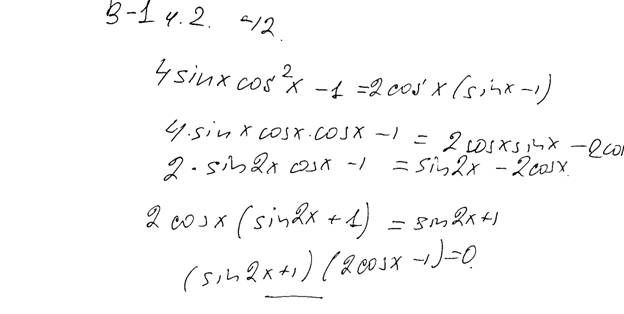 В-1 ч.2. №12.
4 sinx cos²x - 1 = 2 cos x (sinx - 1)
4·sin x cosx·cosx - 1 = 2 cosx sinx - 2cos
2·sin2x cosx - 1 = sin2x - 2cosx.
2 cosx (sin2x + 1) = sin2x+1
(sin2x+1) (2cosx - 1)=0.